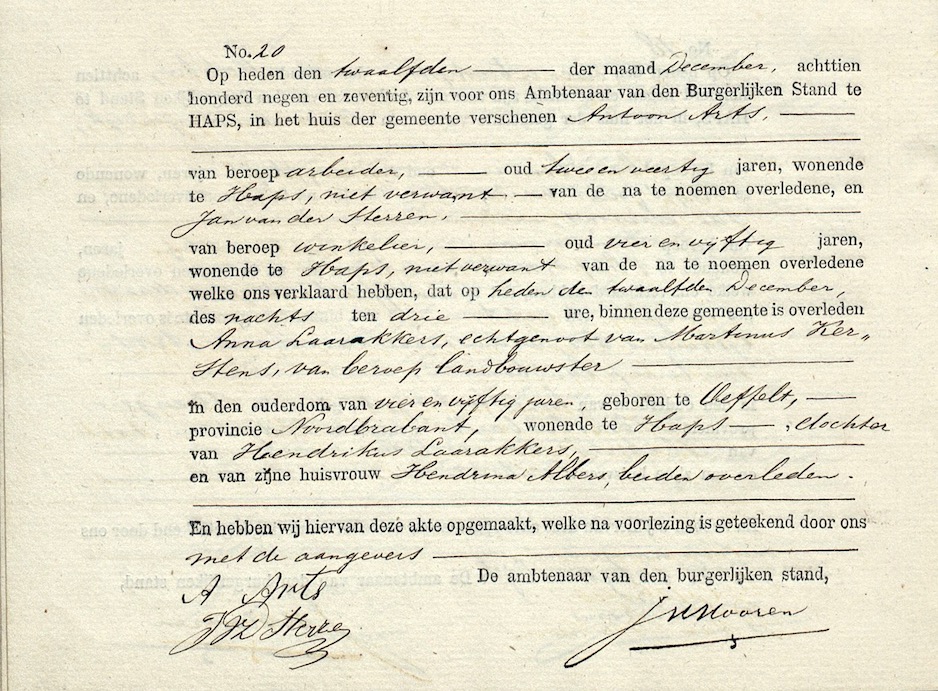 No. 20
Op heden den twaalfden der maand December, achttien
honderd negen en zeventig, zijn voor ons Ambtenaar van den Burgerlijken Stand te
HAPS, in het huis der gemeente verschenen Antoon Arts,
van beroep arbeider, oud twee en veertig jaren, wonende
te Haps, niet verwant van de na te noemen overledene, en
Jan van der Sterren.
van beroep winkelier, oud vier en vijftig jaren,
wonende te Haps, niet verwant van de na te noemen overledene
welke ons verklaard hebben, dat op heden den twaalfden December,
des nachts ten drie ure, binnen deze gemeente is overleden
Anna Laarakkers, echtgenoot van Martinus Ker„
stens, van beroep landbouwster
in den ouderdom van vier en vijftig jaren, geboren te Oeffelt,
provincie Noordbrabant, wonende te Haps, dochter
van Hendrikus Laarakkers,
en van zijne huisvrouw Hendrina Albers, beiden overleden.
En hebben wij hiervan deze akte opgemaakt, welke na voorlezing is geteekend door ons
met de aangevers
De ambtenaar van den burgerlijken stand,
A Arts